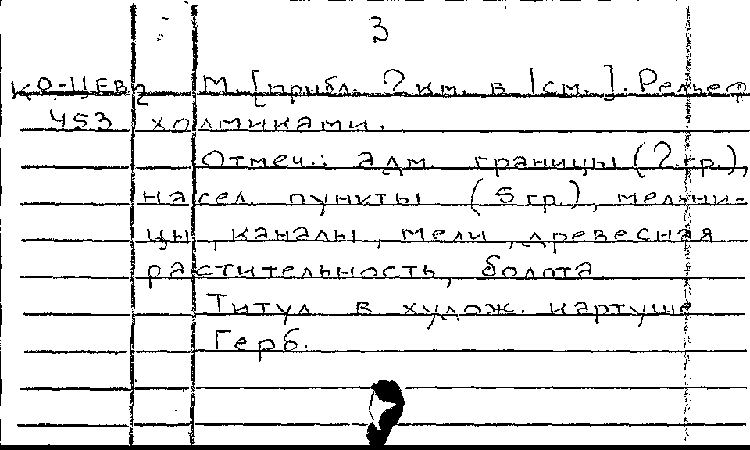 3
КО-ЦЕВ2 М. [прибл. 2 км. в 1 см.]. Рельеф
453 холмиками.
Отмеч.: адм. границы (2 гр.),
насел. пункты (5 гр.), мельни-
цы, каналы, мели, древесная
растительность, болота
Титул в худож. картуше
Герб.